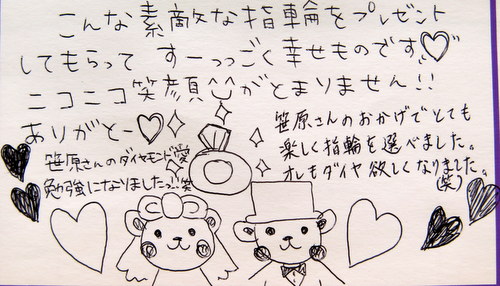 こんな素敵な指輪をプレゼント
してもらって すーっっごく幸せものです♡
ニコニコ笑顔がとまりません!!
ありがとー♡
笹原さんのダイヤモンド愛
勉強になりましたっ!!笑
笹原さんのおかげでとても
楽しく指輪を選べました。
オレもダイヤ欲しくなりました。
(笑)